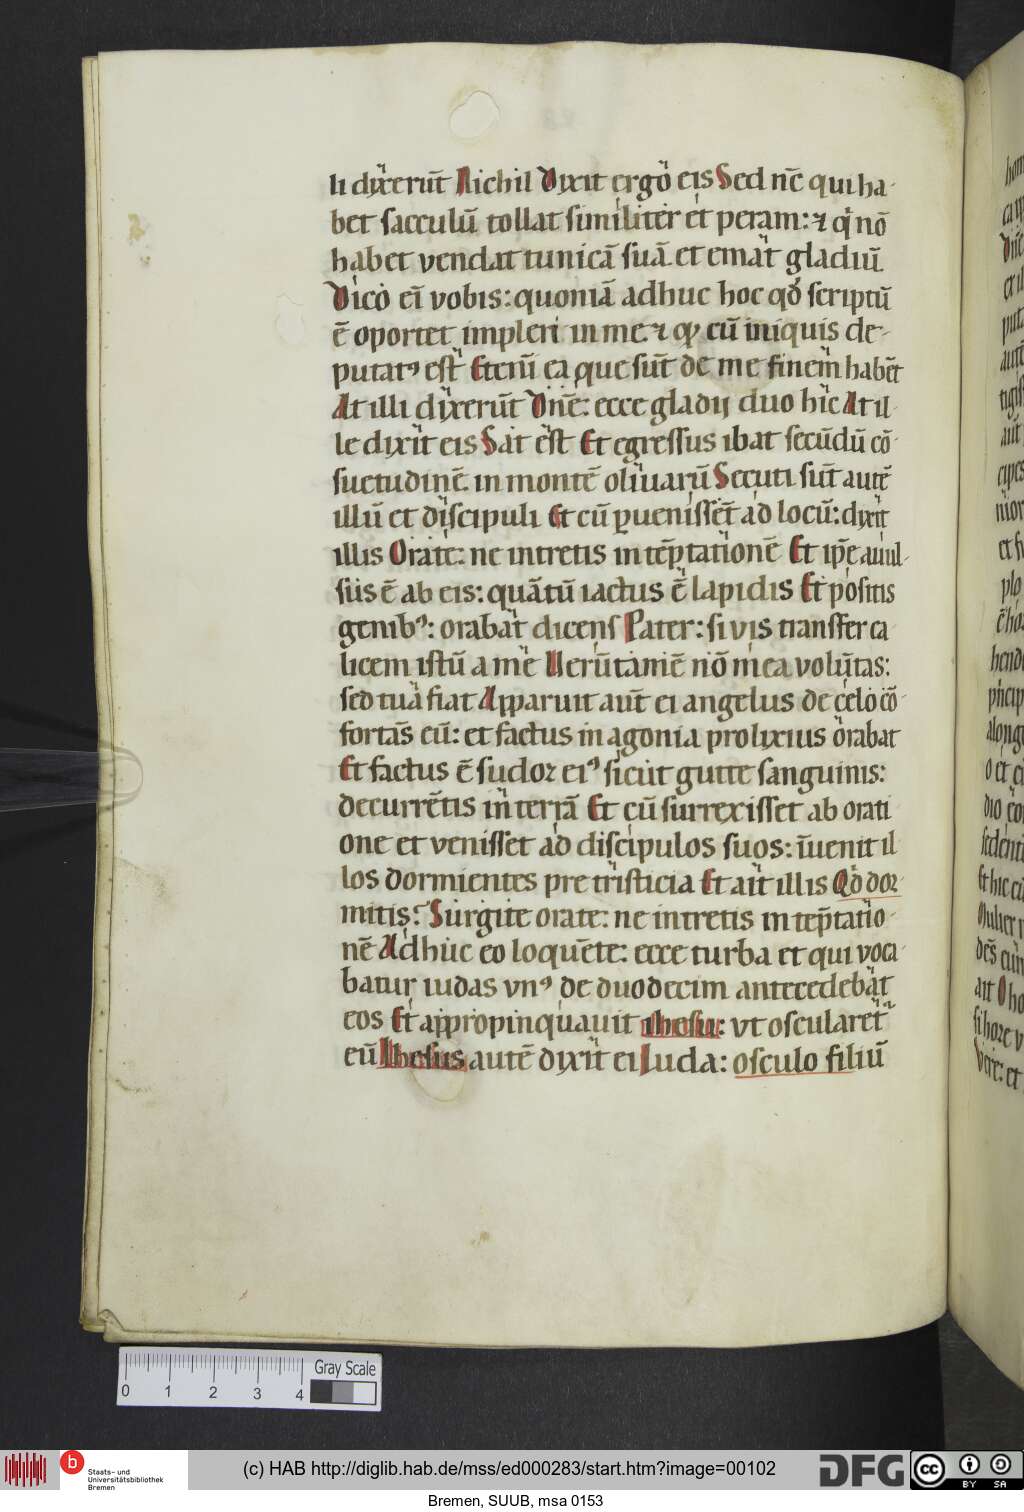 li dixerūt Nichil Dixit ergo eis Sed nc̄ qui ha-
bet sacculū tollat similiter et peram: ⁊ qͥ nō
habet vendat tunicā suā et emat gladiū
Dico ei̅ vobis: quoniā adhuc hoc qđ scriptū
ē oportet impleri in me ⁊ qꝫ cū iniquis de-
putatꝰ est Eteni̅ ea que sūt de me finem habēt
At illi dixerūt Dn̄e: ecce gladij duo hic At il-
le dixit eis Sat est Et egressus ibat secūdū cō-
suetudinē in montē oliuarū Secuti sūt autē
illū et discipuli Et cū ꝑuenisset̄ ad locū: dixit
illis Orate: ne intretis in tēptationē Et ip̄e auul-
sus ē ab eis: quātū iactus ē lapidis Et positis
genibꝰ: orabat dicens Pater: si vis transfer ca
licem istū a me Uerūtamē nō mea volūtas:
sed tua fiat Apparuit aūt ei angelus de celo cō-
fortās eū: et factus in agonia prolixius orabat
Et factus ē sudor eiꝰ sicut gutte sanguinis:
decurrētis in terrā Et cū surrexisset ab orati
one et venisset ad discipulos suos: īuenit il
los dormientes pre tristicia Et ait illis Qđ dor-
mitis? Surgite orate: ne intretis in tēptatio-
nē Adhuc eo loquēte: ecce turba et qui voca-
batur iudas vnꝰ de duodecim antecedebat
eos Et appropinquauit ihesu: vt oscularet̄
eū Ihesus autē dixit ei Iuda: osculo filiū
0 1 2 3 4 Gray Scale
b Staats- und
Universitätsbibliothek
Bremen
(c) HAB http://diglib.hab.de/mss/ed000283/start.htm?image=00102
DFG
cc BY SA
Bremen, SUUB, msa 0153